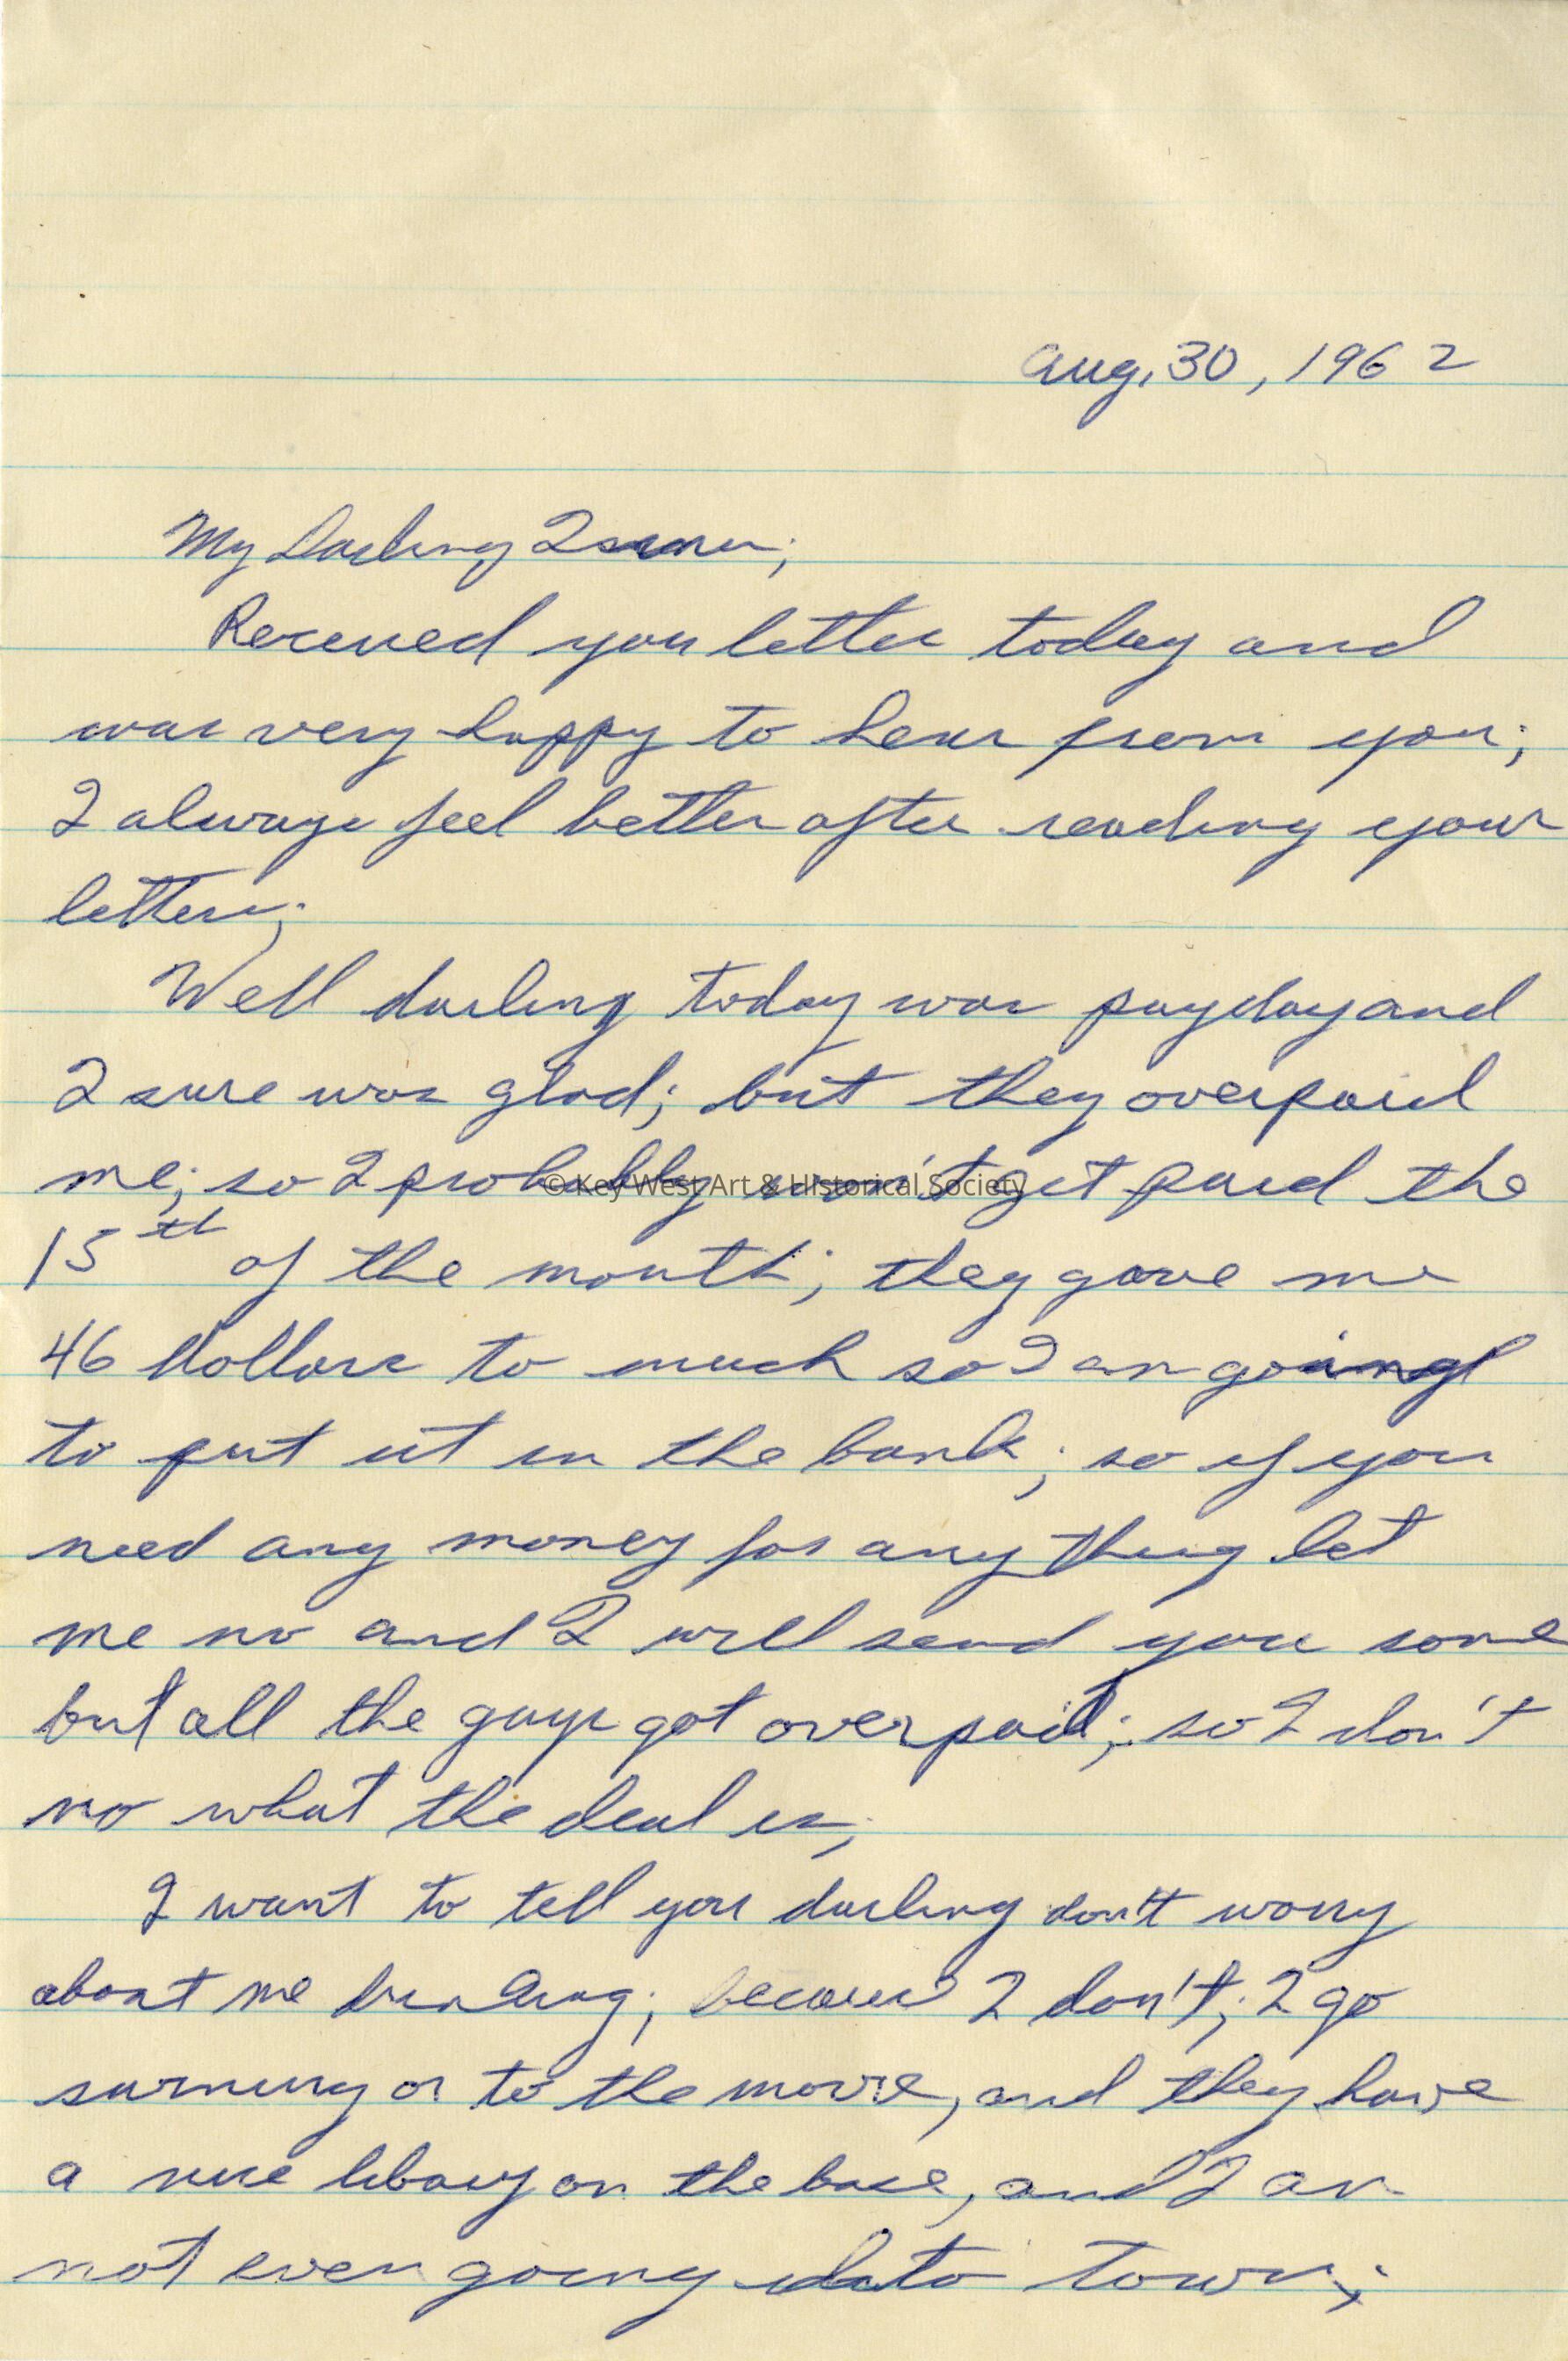 Aug, 30, 1962
My Darling
Received you letter today and
was very happy to hear from you;
I always feel better after reading your
letters;
Well darling today was payday and
I sure was glad; but they overpaid
me; so I probably won't get paid the
15th of the month; they gave me
46 Dollars to much so I am going
to put it in the bank; so if you
need any money for any thing let
me no and I will send you some
but all the guys got overpaid; so I don't
no what the deal is;
I want to tell you darling don't worry
about me drinking; because I don't; I go
swimming or to the movie, and they have
a nice libary on the base, and I am
not even going into town;
© Key West Art & Historical Society